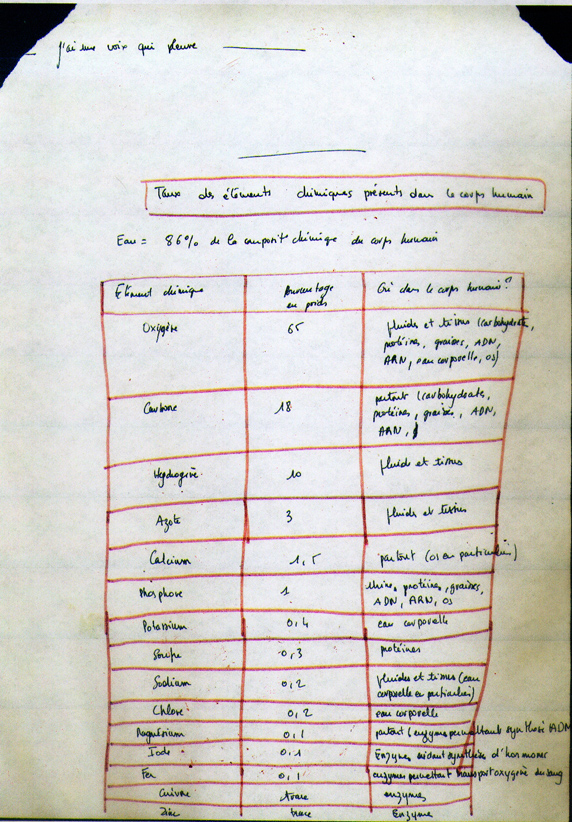 J'ai une voix qui pleure
Taux des éléments chimiques présents dans le corps humain
Eau = 86% de la composit chimique du corps humain
Elément chimique Pourcentage en poids Où dans le corps humain?
Oxygène 65 fluides et tissus (carbohydrate,
protéines, graisses, ADN,
ARN, eau corporelle, os)
Carbone 18 partout (carbohydrate,
protéines, graisses, ADN,
ARN,
Hydrogène 10 fluids et tissus
Azote 3 fluids et tissus
Calcium 1,5 partout (os en particulier)
Phosphore 1 Urine, protéines, graisses,
ADN, ARN, os
Potassium 0,4 eau corporelle
Soufre 0,3 protéines
Sodium 0,2 fluides et tissus (eau
corporelle en particulier)
Chlore 0,2 eau corporelle
Magnésium 0,1 partout (enzymes permettant synthèse ADN
Iode 0,1 Enzymes aidant synthèse d'hormones
Fer 0,1 enzymes permettant transport oxygène du sang
Cuivre trace enzymes
Zinc trace Enzyme